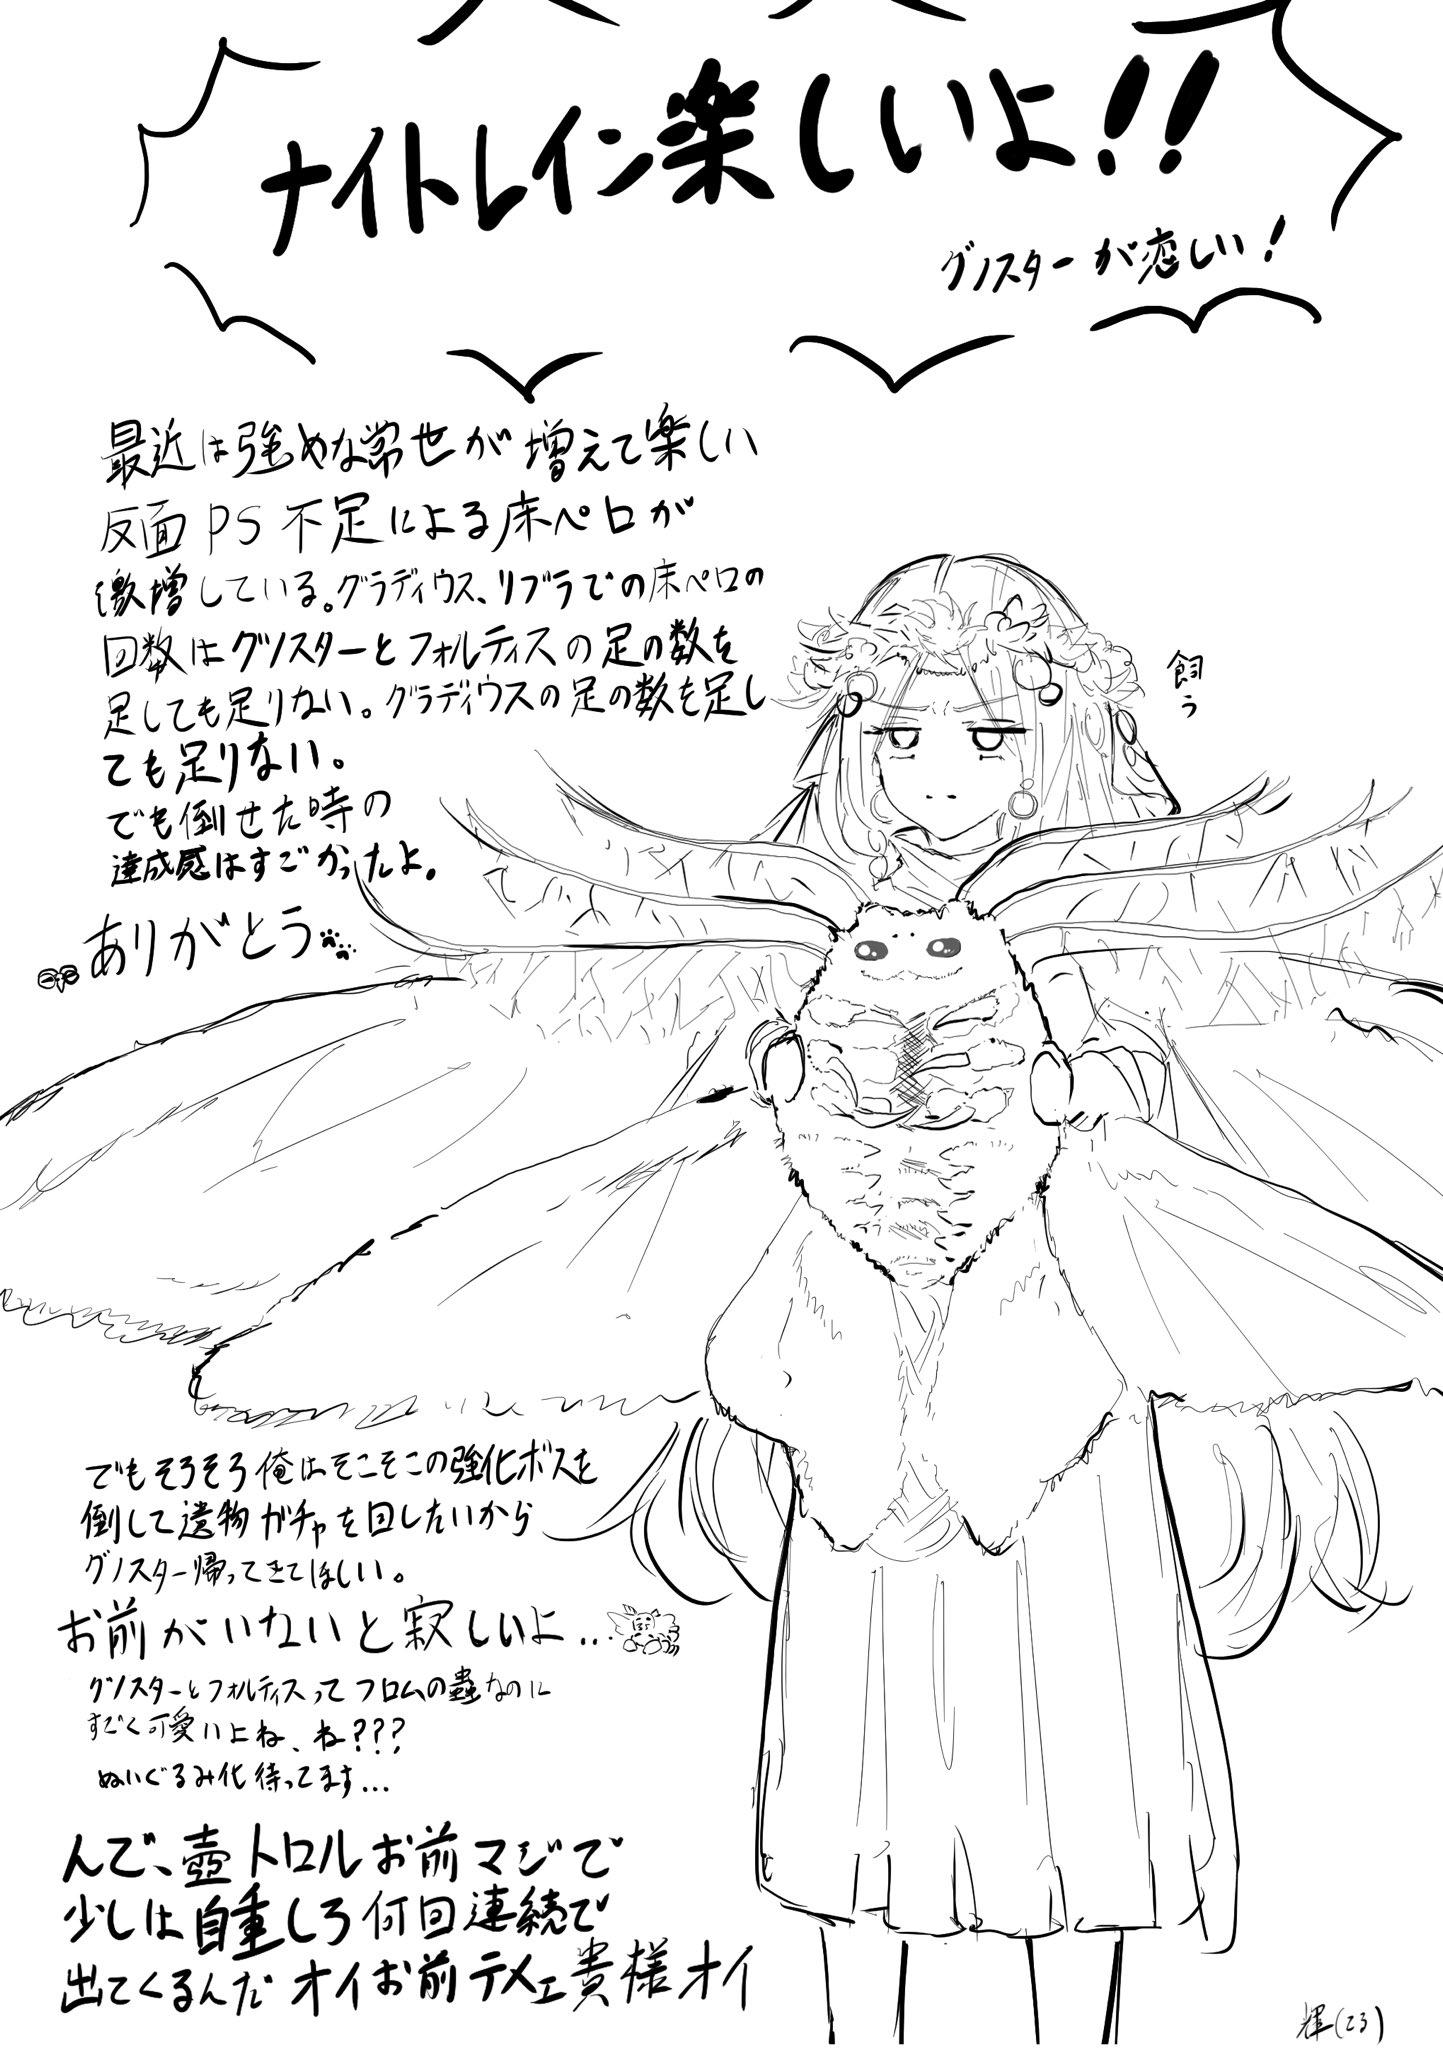 ナイトレイン楽しいよ!!
グノスターが恋しい!
最近は強めな常世が増えて楽しい
反面PS不足による床ペロが
激増している。グラディウス、リブラでの床ペロの
回数はグノスターとフォルティスの足の数を
足しても足りない。グラディウスの足の数を足し
ても足りない。
でも倒せた時の
達成感はすごかったよ。
ありがとう
飼う
でもそろそろ俺はそこそこの強化ボスを
倒して遺物ガチャを回したいから
グノスター帰ってきてほしい。
お前がいないと寂しいよ...
グノスターとフォルティスってフロムの蟲なのに
すごく可愛いよね、ね???
ぬいぐるみ化待ってます...
んで、壺トロルお前マジで
少しは自重しろ何回連続で
出てくるんだオイお前テメェ貴様オイ
輝(23)